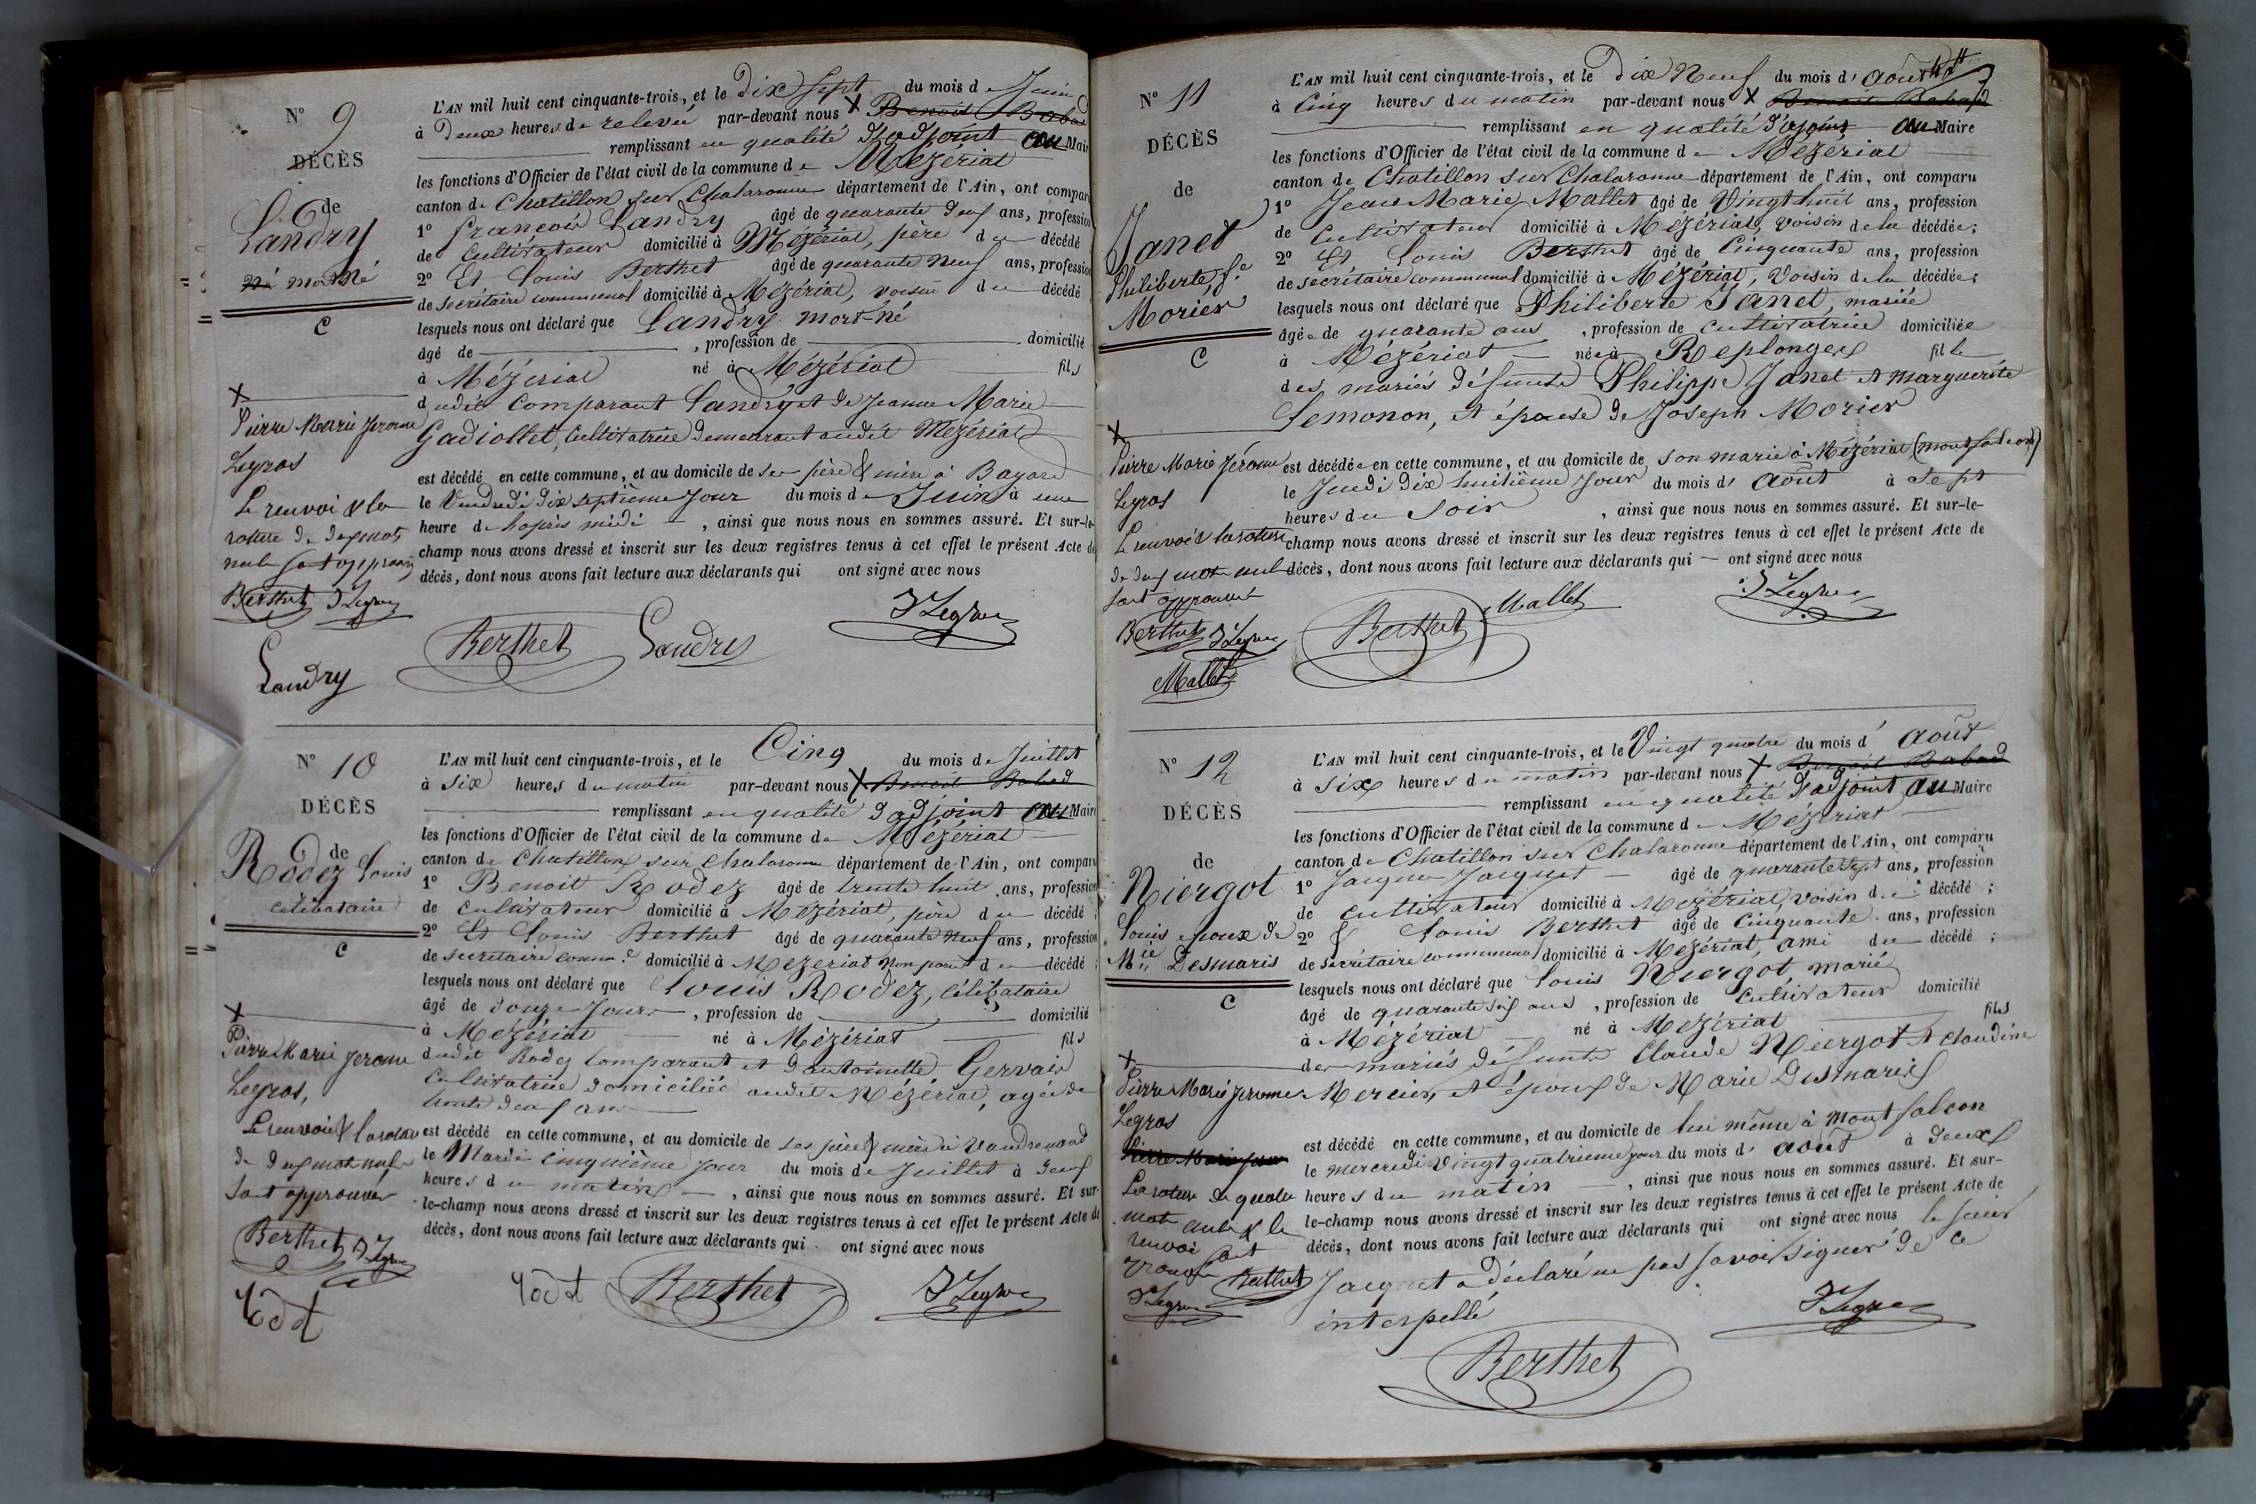 N° 9
DÉCÈS
de
Landry
né mort-né
C
L'AN mil huit cent cinquante-trois, et le Dix Sept du mois de Juin
à Deux heures de relevée par-devant nous X Benoit Babad
remplissant en qualité d'adjoint au Maire
les fonctions d'Officier de l'état civil de la commune de Mézériat
canton de Chatillon sur Chalaronne département de l'Ain, ont comparu
1° François Landry âgé de quarante deux ans, profession
de Cultivateur domicilié à Mézériat, père du décédé
2° Et Louis Berthet âgé de quarante neuf ans, profession
de secrétaire communal domicilié à Mézériat, voisin du décédé
lesquels nous ont déclaré que Landry mort-né
âgé de , profession de domicilié
à Mézériat né à Mézériat fils
dudit Comparant Landry et de Jeanne Marie
Gadiollet, Cultivatrice demeurant audit Mézériat
est décédé en cette commune, et au domicile de ses père & mère à Bayard
le Vendredi dix septième jour du mois de Juin à une
heure de laprès midi , ainsi que nous nous en sommes assuré. Et sur-le-
champ nous avons dressé et inscrit sur les deux registres tenus à cet effet le présent Acte de
décès, dont nous avons fait lecture aux déclarants qui ont signé avec nous
X
Pierre Marie Jerome
Legros
Le renvoi & la
rature de deux mots
nuls sont approuvés
Berthet J Legros
Landry
Berthet Landry J Legros
N° 10
DÉCÈS
de
Rodez Louis
célibataire
C
L'AN mil huit cent cinquante-trois, et le Cinq du mois de Juillet
à six heures du matin par-devant nous X Benoit Babad
remplissant en qualité d'adjoint au Maire
les fonctions d'Officier de l'état civil de la commune de Mézériat
canton de Chatillon sur Chalaronne département de l'Ain, ont comparu
1° Benoit Rodez âgé de trente huit ans, profession
de cultivateur domicilié à Mézériat, père du décédé ;
2° Et Louis Berthet âgé de quarante neuf ans, profession
de secrétaire commal domicilié à Mézériat non parent du décédé ;
lesquels nous ont déclaré que Louis Rodez, célibataire
âgé de douze jours , profession de domicilié
à Mézériat né à Mézériat fils
dudit Rodez Comparant et d'antoinette Gervais
Cultivatrice domiciliée audit Mézériat, agée de
trente deux ans
est décédé en cette commune, et au domicile de ses père & mère à Vandrenand
le Mardi cinquième jour du mois de Juillet à deux
heures du matin , ainsi que nous nous en sommes assuré. Et sur-
le-champ nous avons dressé et inscrit sur les deux registres tenus à cet effet le présent Acte de
décès, dont nous avons fait lecture aux déclarants qui ont signé avec nous
X
Pierre Marie Jerome
Legros,
Le renvoi & la rature
de deux mots nuls
sont approuvés
Berthet J Legros
Rodet
Rodet Berthet J Legros
N° 11
DÉCÈS
de
Janet
Philiberte, fe
Morier
C
L'AN mil huit cent cinquante-trois, et le Dix Neuf du mois d' Août
à Cinq heures du matin par-devant nous X Benoit Babad
remplissant en qualité d'ajoint au Maire
les fonctions d'Officier de l'état civil de la commune de Mézériat
canton de Chatillon sur Chalaronne département de l'Ain, ont comparu
1° Jean Marie Mallet âgé de Vingt huit ans, profession
de Cultivateur domicilié à Mézériat, voisin de la décédée ;
2° Et Louis Berthet âgé de Cinquante ans, profession
de secrétaire communal domicilié à Mézériat, voisin de la décédée ;
lesquels nous ont déclaré que Philiberte Janet, mariée
âgée de quarante ans , profession de cultivatrice domiciliée
à Mézériat née à Replonges fille
des mariés défunts Philippe Janet et Marguerite
Lemonon, et épouse de Joseph Morier
est décédée en cette commune, et au domicile de son marie à Mézériat, (montfalcon)
le Jeudi dix huitième jour du mois d' Août à Sept
heures du Soir , ainsi que nous nous en sommes assuré. Et sur-le-
champ nous avons dressé et inscrit sur les deux registres tenus à cet effet le présent Acte de
décès, dont nous avons fait lecture aux déclarants qui ont signé avec nous
X
Pierre Marie Jérome
Legros
Le renvoi & la rature
de deux mots nuls
sont approuvés
Berthet J Legros
Mallet
Berthet Mallet J Legros
N° 12
DÉCÈS
de
Niergot
Louis époux de
Mie Desmaris
C
L'AN mil huit cent cinquante-trois, et le Vingt quatre du mois d' Août
à six heures du matin par-devant nous X Benoit Babad
remplissant en qualité d'adjoint au Maire
les fonctions d'Officier de l'état civil de la commune de Mézériat
canton de Chatillon sur Chalaronne département de l'Ain, ont comparu
1° Jacques Jacquet âgé de quarante sept ans, profession
de cultivateur domicilié à Mézériat, voisin du décédé ;
2° & Louis Berthet âgé de Cinquante ans, profession
de secrétaire communal domicilié à Mézériat, ami du décédé ;
lesquels nous ont déclaré que Louis Niergot, marié
âgé de quarante six ans , profession de Cultivateur domicilié
à Mézériat né à Mézériat fils
des mariés défunts Claude Niergot & Claudine
Mercier, et époux de Marie Desmaris
est décédé en cette commune, et au domicile de lui même à Montfalcon
le mercredi vingt quatrième jour du mois d' août à deux
heures du matin , ainsi que nous nous en sommes assuré. Et sur-
le-champ nous avons dressé et inscrit sur les deux registres tenus à cet effet le présent Acte de
décès, dont nous avons fait lecture aux déclarants qui ont signé avec nous le sieur
Jacquet a déclaré ne pas savoir signer de ce
interpellé
X
Pierre Marie Jerome
Legros
Pierre Marie Jerome
La rature de quatre
mots nuls & le
renvoi sont
Berthet
J Legros
J Legros
Berthet